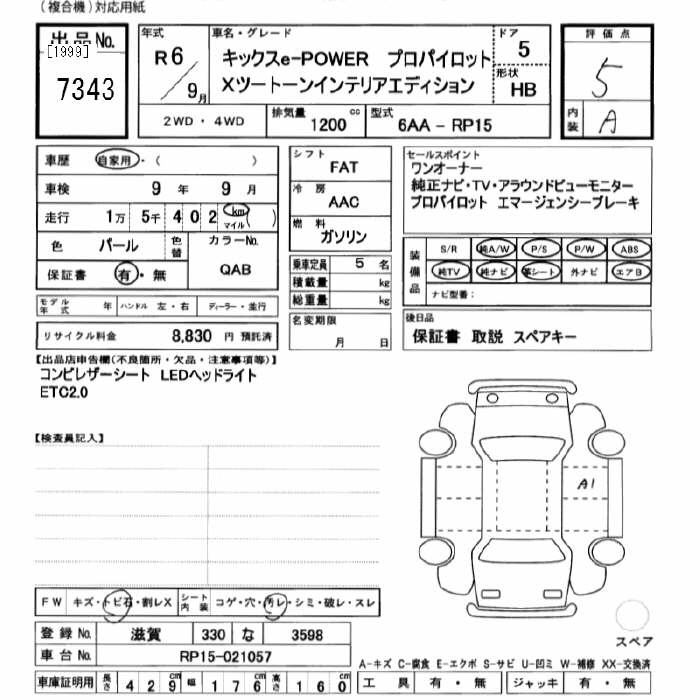 (複合機)対応用紙
出品No.
[1999]
7343
年式
R6/9月
車名・グレード
キックスe-POWER プロパイロット
Xツートーンインテリアエディション
ドア
5
形状
HB
2WD・4WD
排気量 1200 cc
型式 6AA-RP15
評価点
5
内装 A
車歴 自家用・( )
車検 9年 9月
走行 1万 5千 402 km マイル ( )
色 パール 色替 カラーNo. QAB
保証書 有・無
モデル年式 年 ハンドル 左・右 ディーラー・並行
リサイクル料金 8,830 円 預託済
シフト
FAT
冷房
AAC
燃料
ガソリン
乗車定員 5 名
積載量 kg
総重量 kg
名変期限
月 日
セールスポイント
ワンオーナー
純正ナビ・TV・アラウンドビューモニター
プロパイロット エマージェンシーブレーキ
装備品
S/R 純A/W P/S P/W ABS
純TV 純ナビ 革シート 外ナビ エアB
ナビ型番:
後日品
保証書 取説 スペアキー
【出品店申告欄(不良箇所・欠品・注意事項等)】
コンビレザーシート LEDヘッドライト
ETC2.0
【検査員記入】
A1
FW キズ・トビ石・割レX シート内装 コゲ・穴・汚レ・シミ・破レ・スレ
登録No. 滋賀 330 な 3598
車台No. RP15-021057
車庫証明用 長さ 429cm 幅 176cm 高さ 160cm
スペア
A-キズ C-腐食 E-エクボ S-サビ U-凹ミ W-補修 XX-交換済
工具 有・無 ジャッキ 有・無